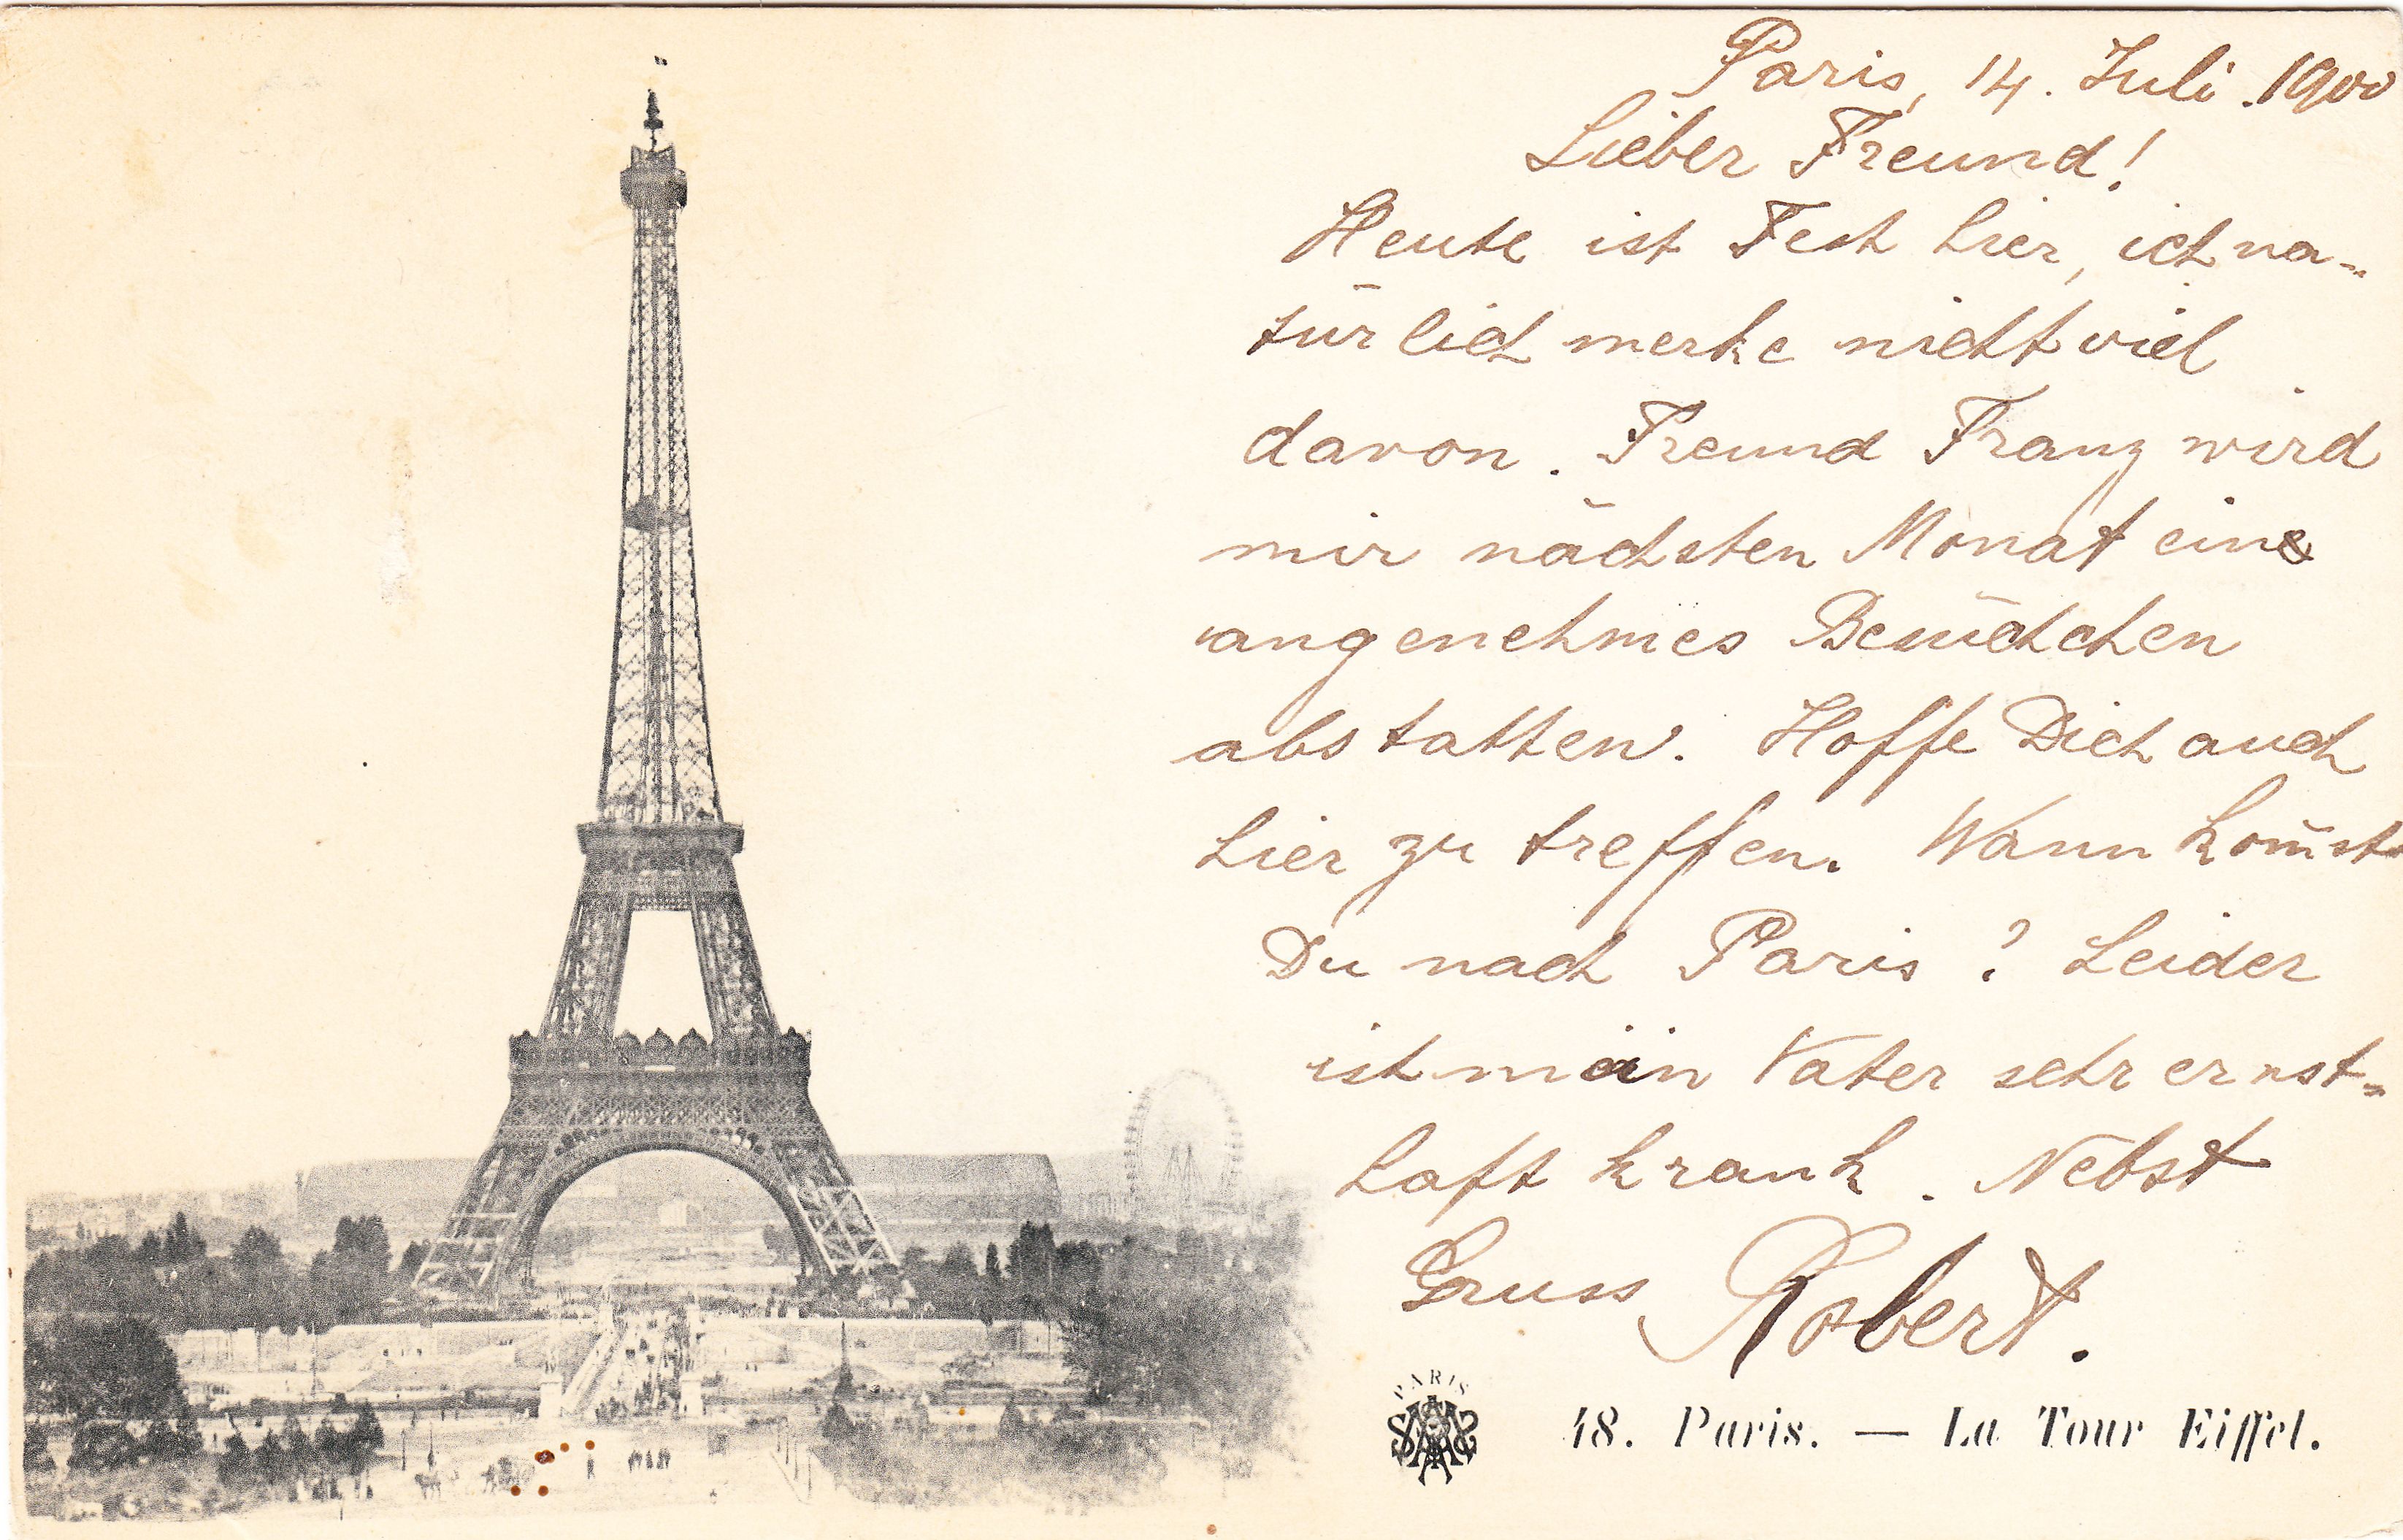 Paris, 14. Juli. 1900
Lieber Freund!
Heute ist Fest hier, ich na-
türlich merke nicht viel
davon. Freund Franz wird
mir nächsten Monat eine
angenehmes Besüchchen
abstatten. Hoffe Dich auch
hier zu treffen. Wann kom̄st
Du nach Paris? Leider
ist mein Vater sehr ernst-
haft krank. Nebst
Gruss Robert.
PARIS
48. Paris. — La Tour Eiffel.